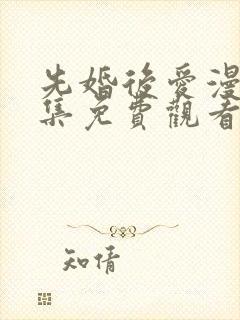 先婚後愛漫
集免費觀看
知情